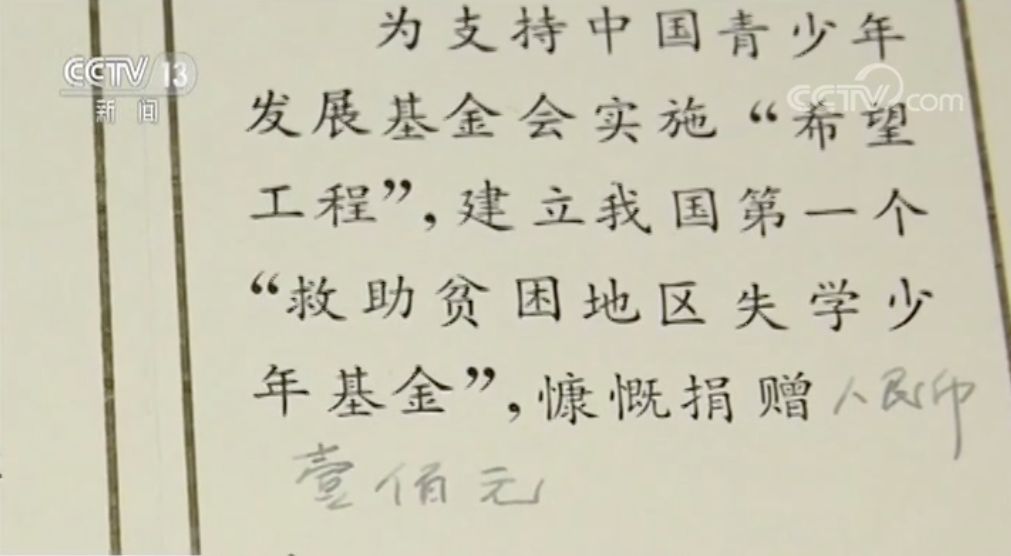 CCTV 13
新闻
CCTV.com
为支持中国青少年
发展基金会实施“希望
工程”,建立我国第一个
“救助贫困地区失学少
年基金”,慷慨捐赠人民币
壹佰元